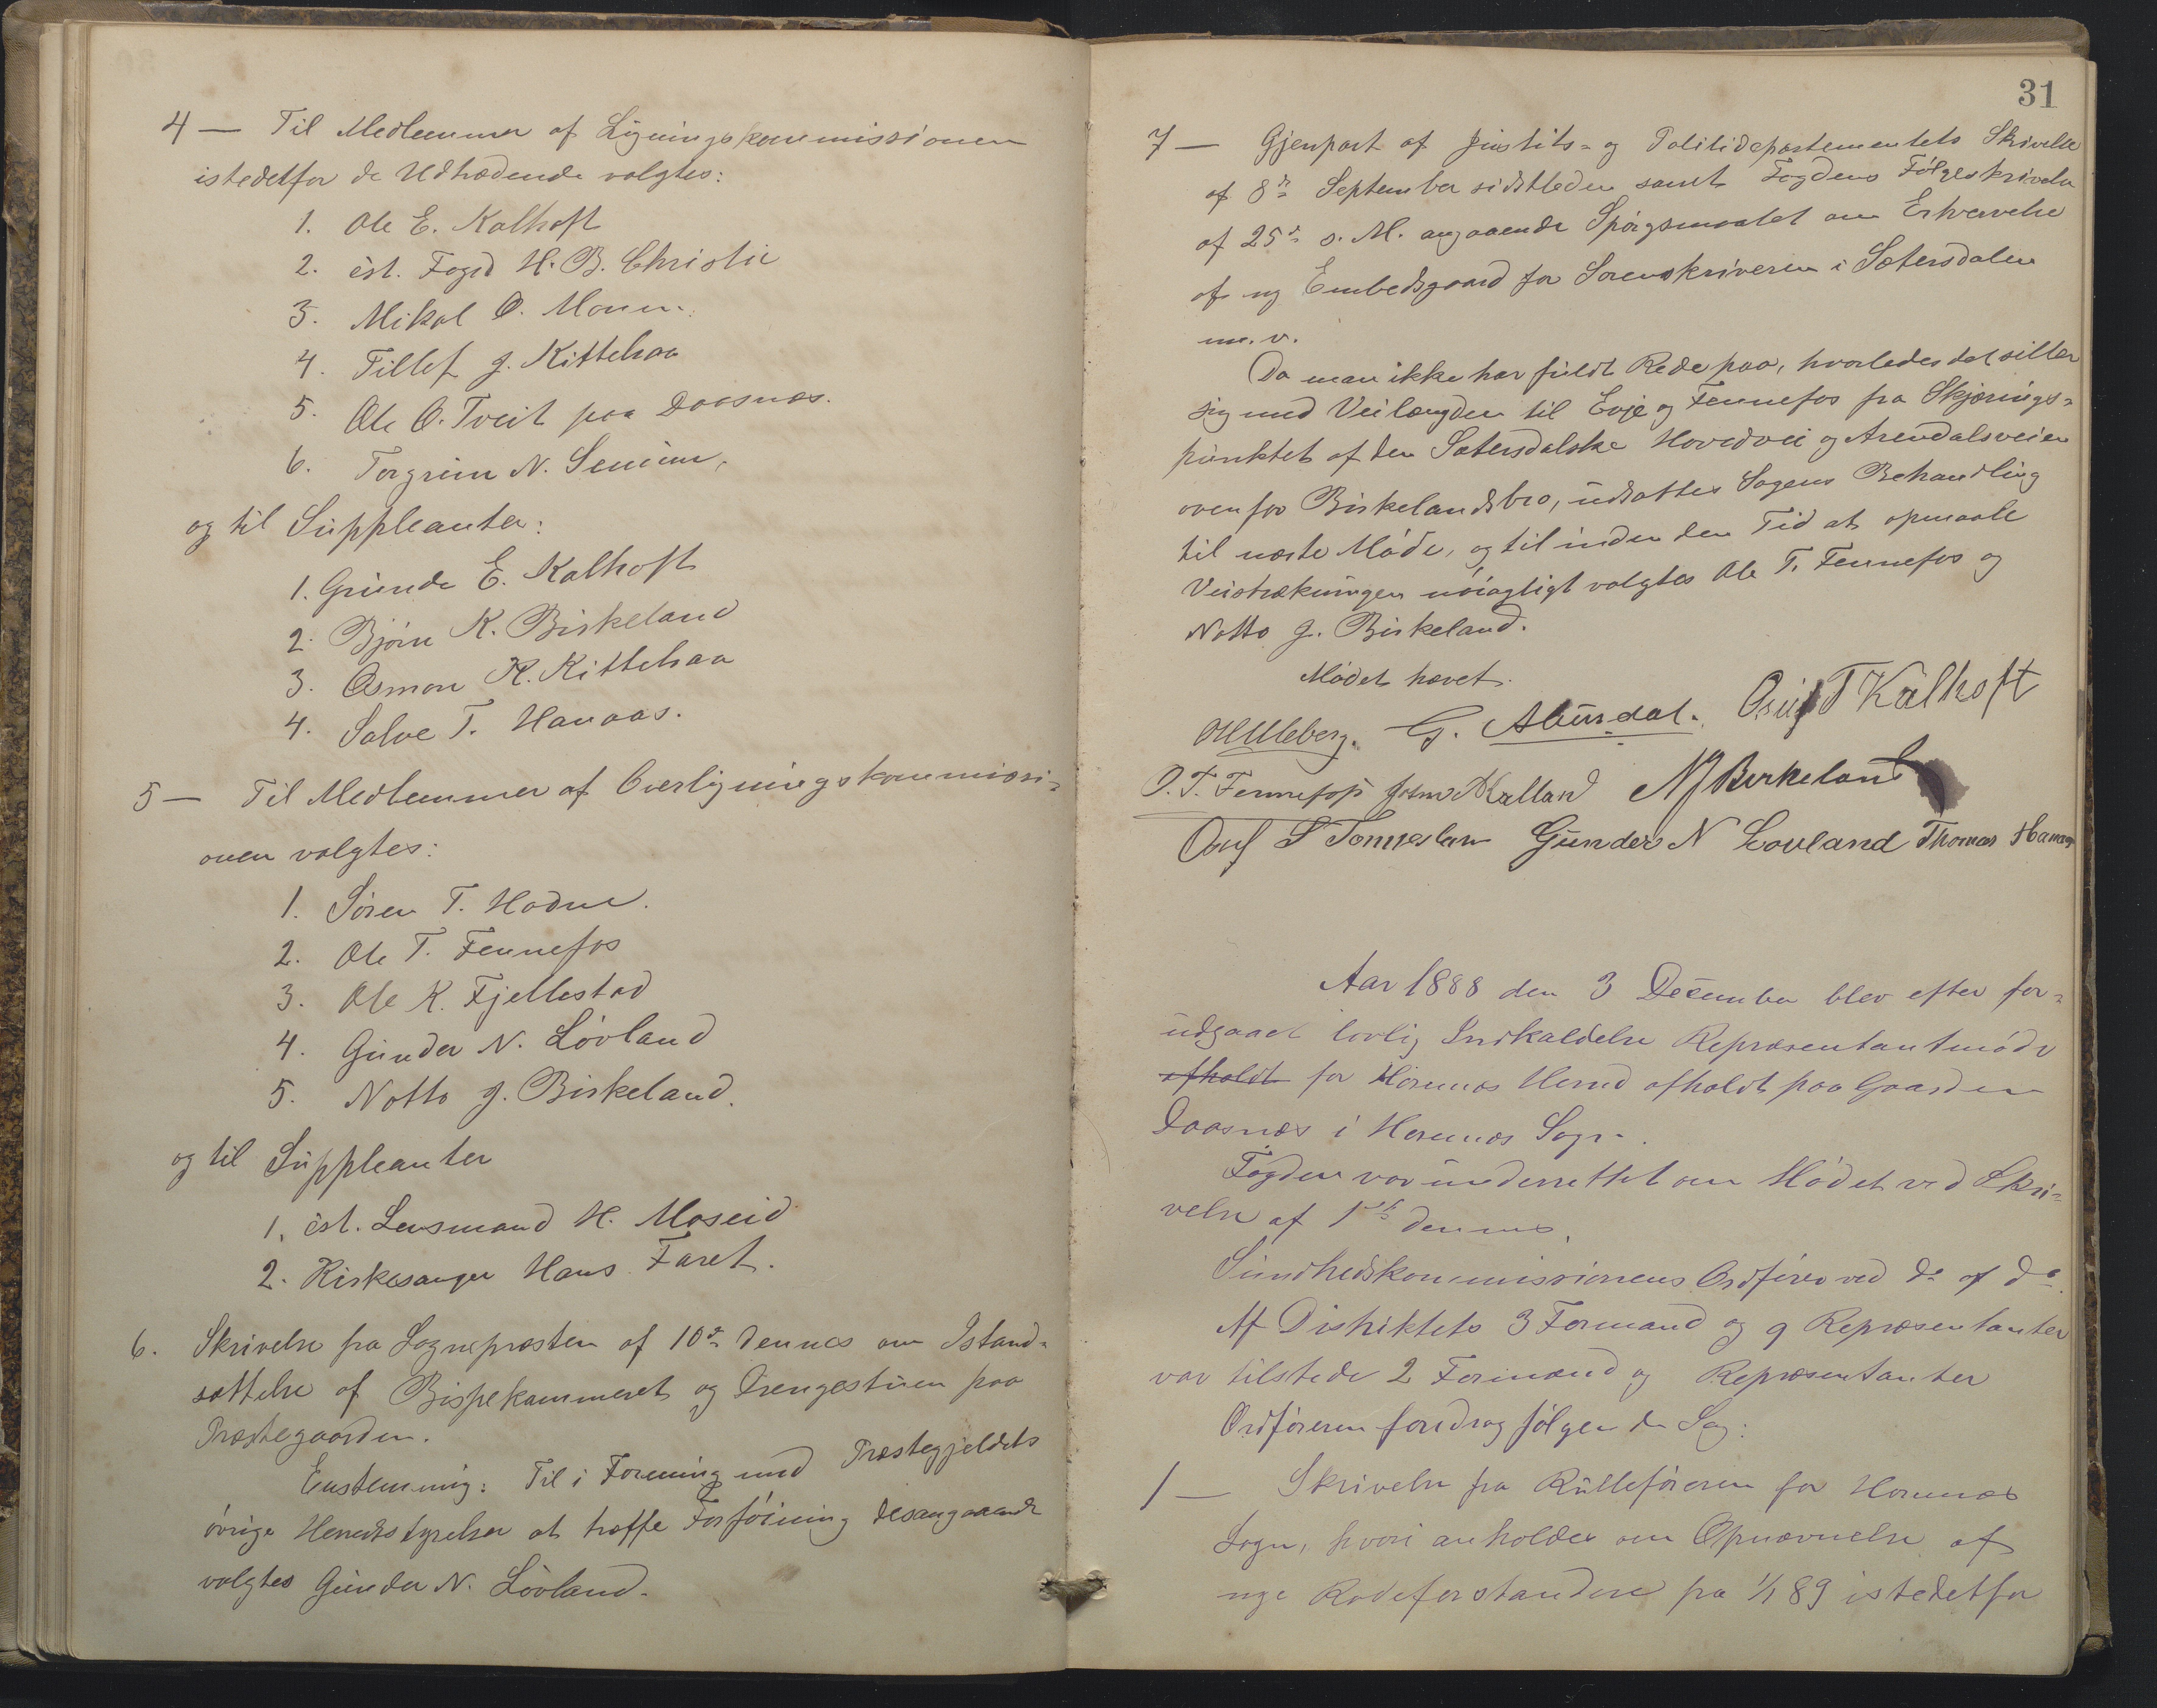 4 — Til Medlemmer af Ligningskommissionen
istedetfor de Udtrædende valgtes:
1. Ole E. Kalhoft
2. cst. Fogd H. B. Christie
3. Mikal O. Moen.
4. Tellef J. Kittelsaa
5. Ole O. Tveit paa Daasnes.
6. Torgrim N. Senum,
og til Suppleanter:
1. Gunde E. Kalhoft
2. Bjørn K. Birkeland
3. Osmon K. Kittelsaa
4. Salve T. Hanaas.
5 — Til Medlemmer af Overligningskommissi-
onen valgtes:
1. Søren T. Hodne.
2. Ole T. Fennefos
3. Ole K. Fjellestad
4. Gunder N. Løvland
5. Notto J. Birkeland.
og til Suppleanter
1. cst. Lensmand H. Moseid
2. Kirkesanger Hans Faret.
6. Skrivelse fra Sognepræsten af 10de dennes om Istand-
sættelse af Bispekammeret og Drengestuen paa
Præstegaarden.
Enstemmig: Til i Forening med Præstegjeldets
øvrige Heredsstyrelser at træffe Forføining desangaaende
valgtes Gunder N. Løvland.
31
7 — Gjenpart af Justits- og Politidepartementets Skrivelse
af 8de September sidstleden samt Fogdens Følgeskrivelse
af 25de s. M. angaaende Spørgsmaalet om Erhvervelse
af ny Embedsgaard for Sorenskriveren i Sætersdalen
m. v.
Da man ikke har fuldt Rede paa, hvorledes det stiller
sig med Veilængden til Evje og Fennefos fra Skjærings-
punktet af den Sætersdalske Hovedvei og Arendalsveien
ovenfor Birkelandsbro, udsattes Sagens Behandling
til næste Møde, og til inden den Tid at opmaale
Veistrækningen nøiagtigt valgtes Ole T. Fennefos og
Notto J. Birkeland.
Mødet hævet.
O Uleberg. G. Abusdal. Osuf T Kalhoft
O. T. Fennefos Kalland N J Birkeland
Osuf S Tonneslan Gunder N Lovland Thomas Hanaas
Aar 1888 den 3 December blev efter for-
udgaaet lovlig Indkaldelse Repræsentantmøde
afholdt for Hornnes Herred afholdt paa Gaarden
Daasnes i Hornnes Sogn.
Fogden var underrettet om Mødet ved Skri-
velse af 1ste dennes.
Sundhedskommissionens Ordfører ved do af do.
Af Distriktets 3 Formænd og 9 Repræsentanter
var tilstede 2 Formænd og Repræsentanter
Ordføreren foredrog følgende Sag:
1 — Skrivelse fra Rulleføreren for Hornnes
Sogn, hvori anholdes om Opnævnelse af
nye Rodeforstandere fra 1/1 89 istedetfor